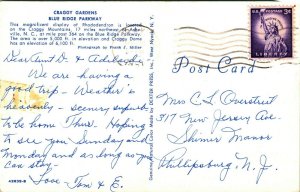 CRAGGY GARDENS
BLUE RIDGE PARKWAY
This magnificent display of Rhododendron is located on
the Craggy Mountains, 17 miles northeast of Asheville, N. C., at mile post 364 on the Blue Ridge Parkway.
The area is over 5,000 ft. in elevation and Craggy Dome
has an elevation of 6,100 ft.
Photograph by Frank C. Miller
Dear Aunt D. &
Are having a
good trip - Weather's
heavenly - scenery superb
to be home Thur. Hoping
to see you Sunday and
Monday and as long as you
can stay.
Love Tom & E.
42839-B
DEXTER PRESS, INC.
Post Card
U.S. POSTAGE 3¢
LIBERTY
Mrs C L Overstreet
317 New Jersey Ave
Shimer Manor
Phillipsburg N. J.